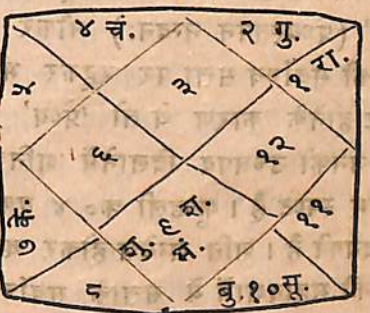 ४ चं.
२ गु.
१ रा.
३
५
६
१२
७ के.
९ श.
शु. मं.
११
८
बु. १० सू.